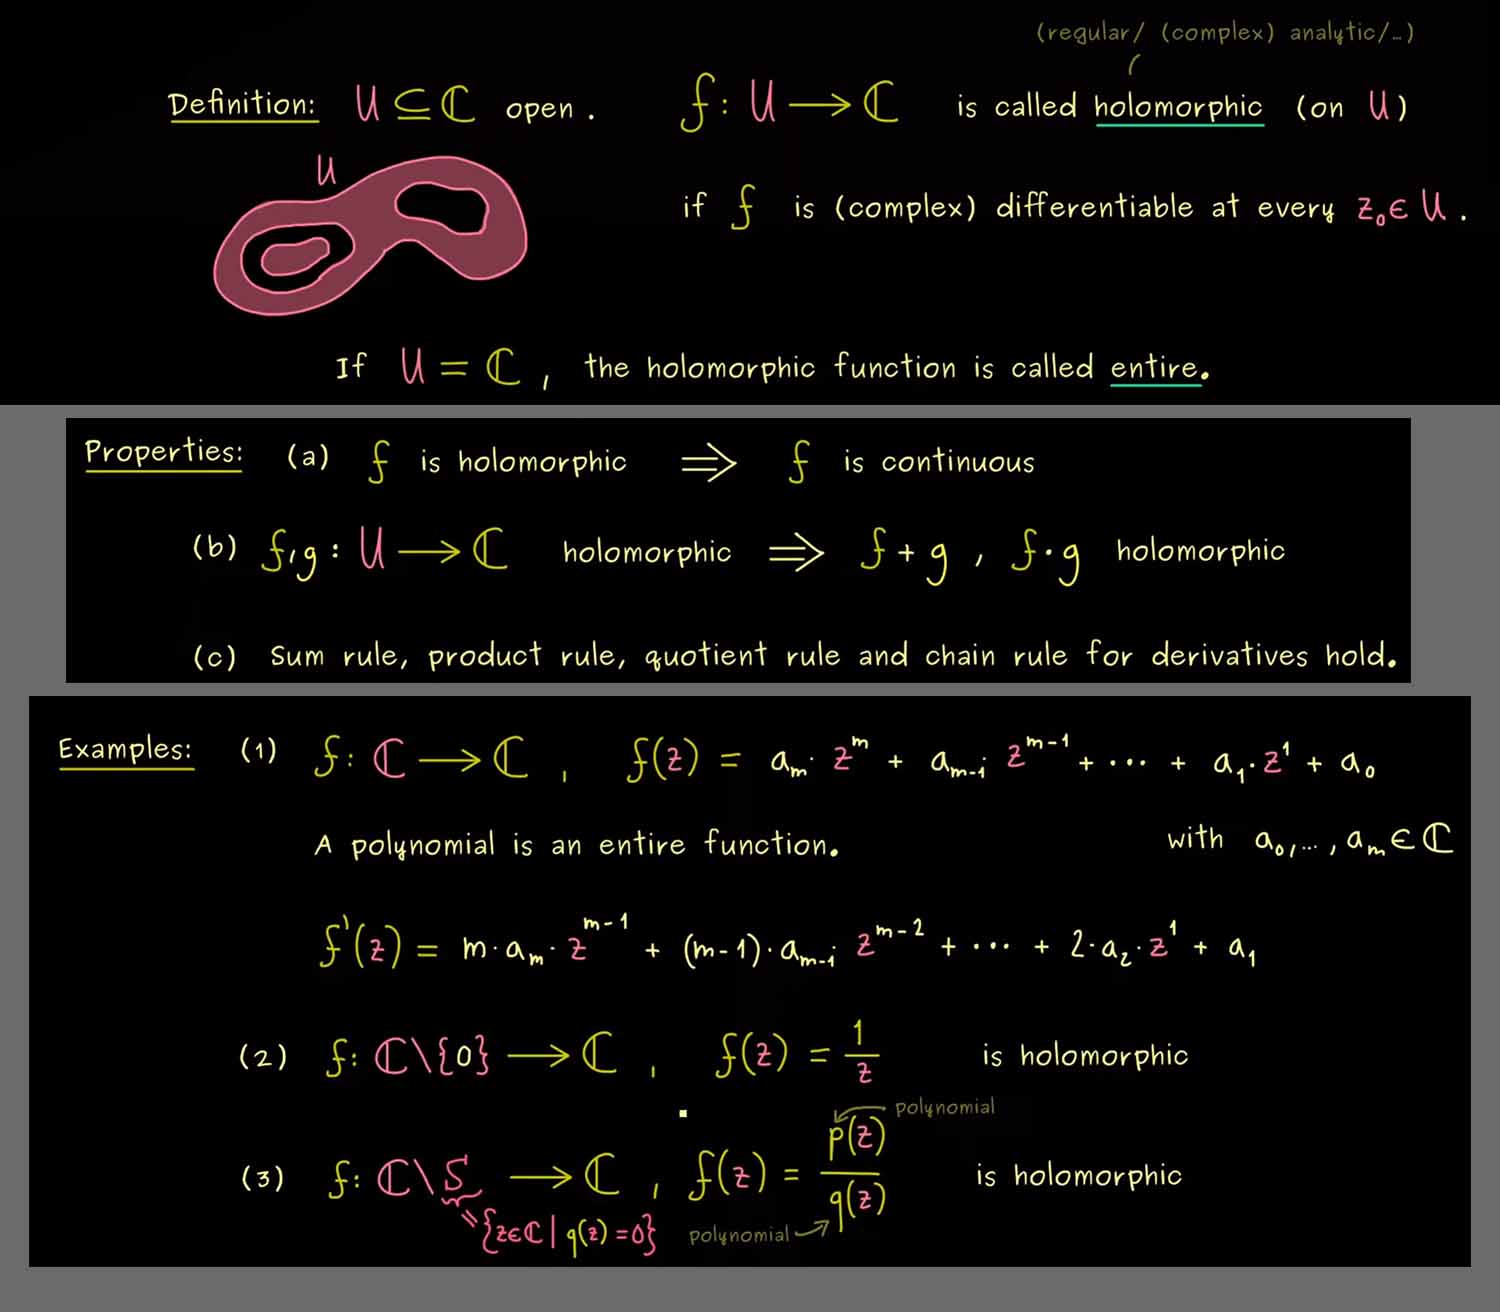 (regular/ (complex) analytic/...)
Definition: U ⊆ ℂ open. f: U ⟶ ℂ is called holomorphic (on U)
U
if f is (complex) differentiable at every z₀ ∈ U.
If U = ℂ, the holomorphic function is called entire.
Properties: (a) f is holomorphic ⟹ f is continuous
(b) f, g : U ⟶ ℂ holomorphic ⟹ f + g , f · g holomorphic
(c) Sum rule, product rule, quotient rule and chain rule for derivatives hold.
Examples: (1) f: ℂ ⟶ ℂ , f(z) = aₘ · z^m + aₘ₋₁ z^{m-1} + ⋯ + a₁ · z¹ + a₀
A polynomial is an entire function. with a₀, ..., aₘ ∈ ℂ
f'(z) = m · aₘ · z^{m-1} + (m-1) · aₘ₋₁ z^{m-2} + ⋯ + 2 · a₂ · z¹ + a₁
(2) f: ℂ\{0} ⟶ ℂ , f(z) = 1/z is holomorphic
polynomial
(3) f: ℂ\S ⟶ ℂ , f(z) = p(z)/q(z) is holomorphic
= {z ∈ ℂ | q(z) = 0} polynomial